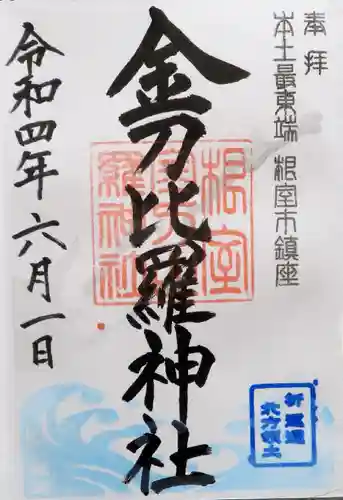 奉拝
本土最東端 根室市鎮座
金刀比羅神社
根室金刀比羅神社
令和四年六月一日
祈還運
北方領土